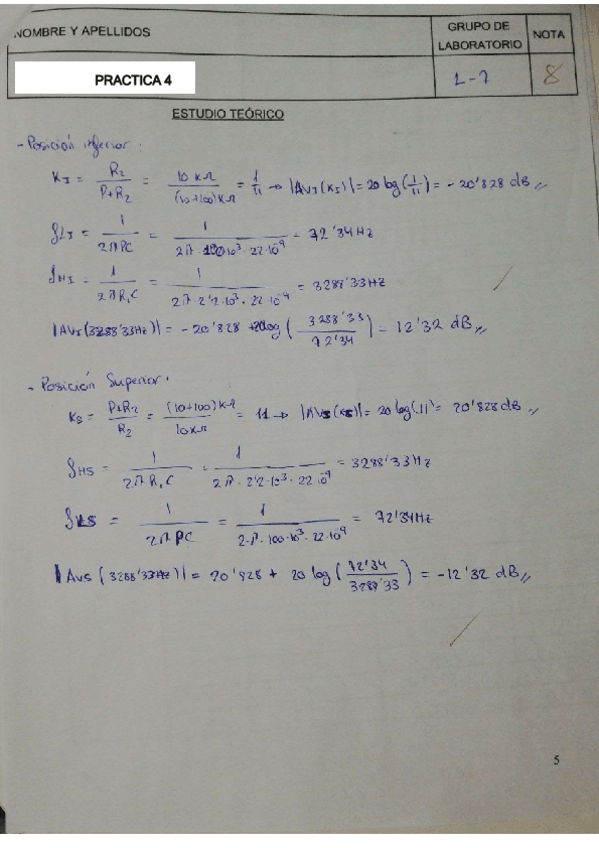 NOMBRE Y APELLIDOS
GRUPO DE LABORATORIO
NOTA
PRACTICA 4
L-7
8
ESTUDIO TEÓRICO
- Posición inferior:
K_I = R_2 / (P+R_2) = 10 KΩ / (10+100)KΩ = 1/11 → |Av_I(K_I)| = 20 log(1/11) = -20'828 dB,,
f_LI = 1 / (2πPC) = 1 / (2π·100·10^3·22·10^-9) = 72'34Hz
f_HI = 1 / (2πR_1C) = 1 / (2π·2'2·10^3·22·10^-9) = 3288'33Hz
|Av_I(3288'33Hz)| = -20'828 + 20log(3288'33 / 72'34) = 12'32 dB,,
- Posición Superior:
K_S = (P+R_2) / R_2 = (10+100)KΩ / 10KΩ = 11 → |Av_S(K_S)| = 20 log(11) = 20'828 dB,,
f_HS = 1 / (2πR_1C) = 1 / (2π·2'2·10^3·22·10^-9) = 3288'33Hz
f_LS = 1 / (2πPC) = 1 / (2·π·100·10^3·22·10^-9) = 72'34Hz
|Av_S(3288'33Hz)| = 20'828 + 20 log(72'34 / 3288'33) = -12'32 dB,,
5